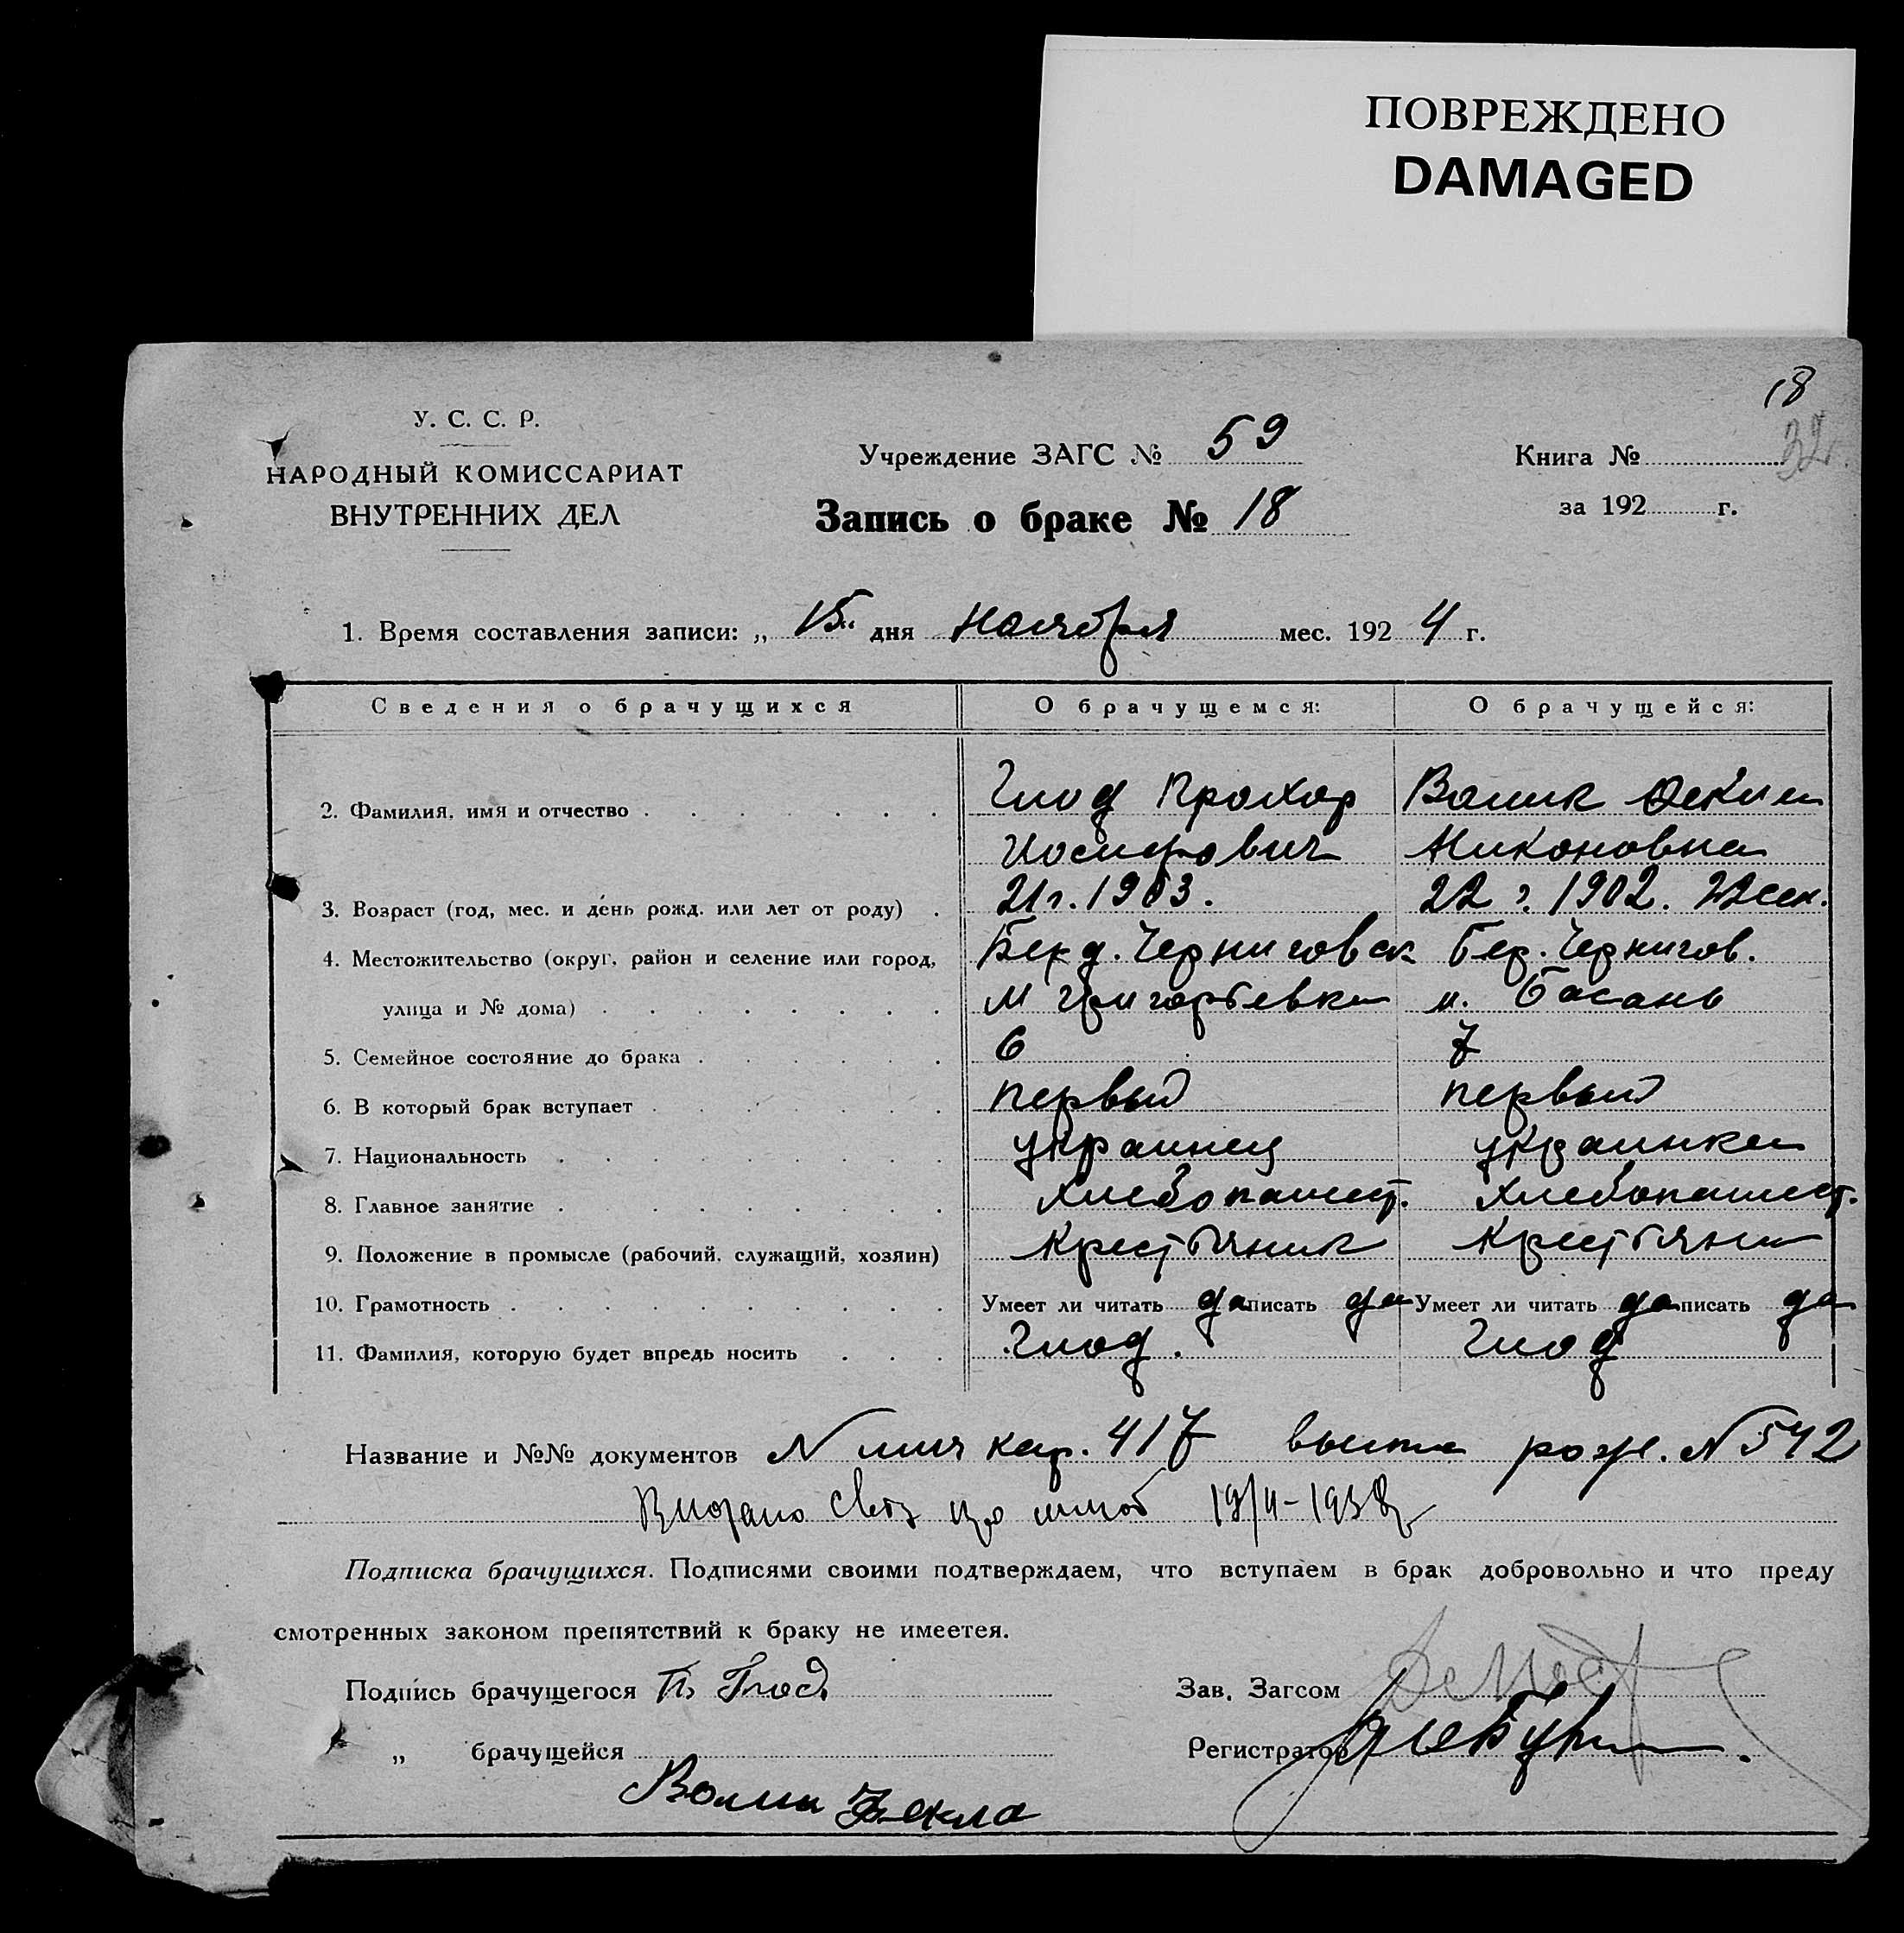 ПОВРЕЖДЕНО
DAMAGED
18
32
У. С. С. Р.
НАРОДНЫЙ КОМИССАРИАТ
ВНУТРЕННИХ ДЕЛ
Учреждение ЗАГС № 59
Запись о браке № 18
Книга №
за 192 г.
1. Время составления записи: „ 15 “ дня Ноября мес. 1924 г.
Сведения о брачущихся О брачущемся: О брачущейся:
2. Фамилия, имя и отчество Глод Прохор
Иосифович Никоновна
3. Возраст (год, мес. и день рожд. или лет от роду) 21 г. 1903. 22 г. 1902.
4. Местожительство (округ, район и селение или город, Черниговск Чернигов.
улица и № дома) м Григорьевка м. Басань
5. Семейное состояние до брака 6 7
6. В который брак вступает первый первый
7. Национальность украинец украинка
8. Главное занятие хлебопашест. хлебопашест.
9. Положение в промысле (рабочий, служащий, хозяин) Крестьянин Крестьянка
10. Грамотность Умеет ли читать да писать да Умеет ли читать да писать да
11. Фамилия, которую будет впредь носить Глод. Глод
Название и №№ документов N лич кар. 417 рожд. N 542
Подписка брачущихся. Подписями своими подтверждаем, что вступаем в брак добровольно и что преду
смотренных законом препятствий к браку не имеетея.
Подпись брачущегося П. Глод
Зав. Загсом
„ брачущейся
Регистратор
Фекла